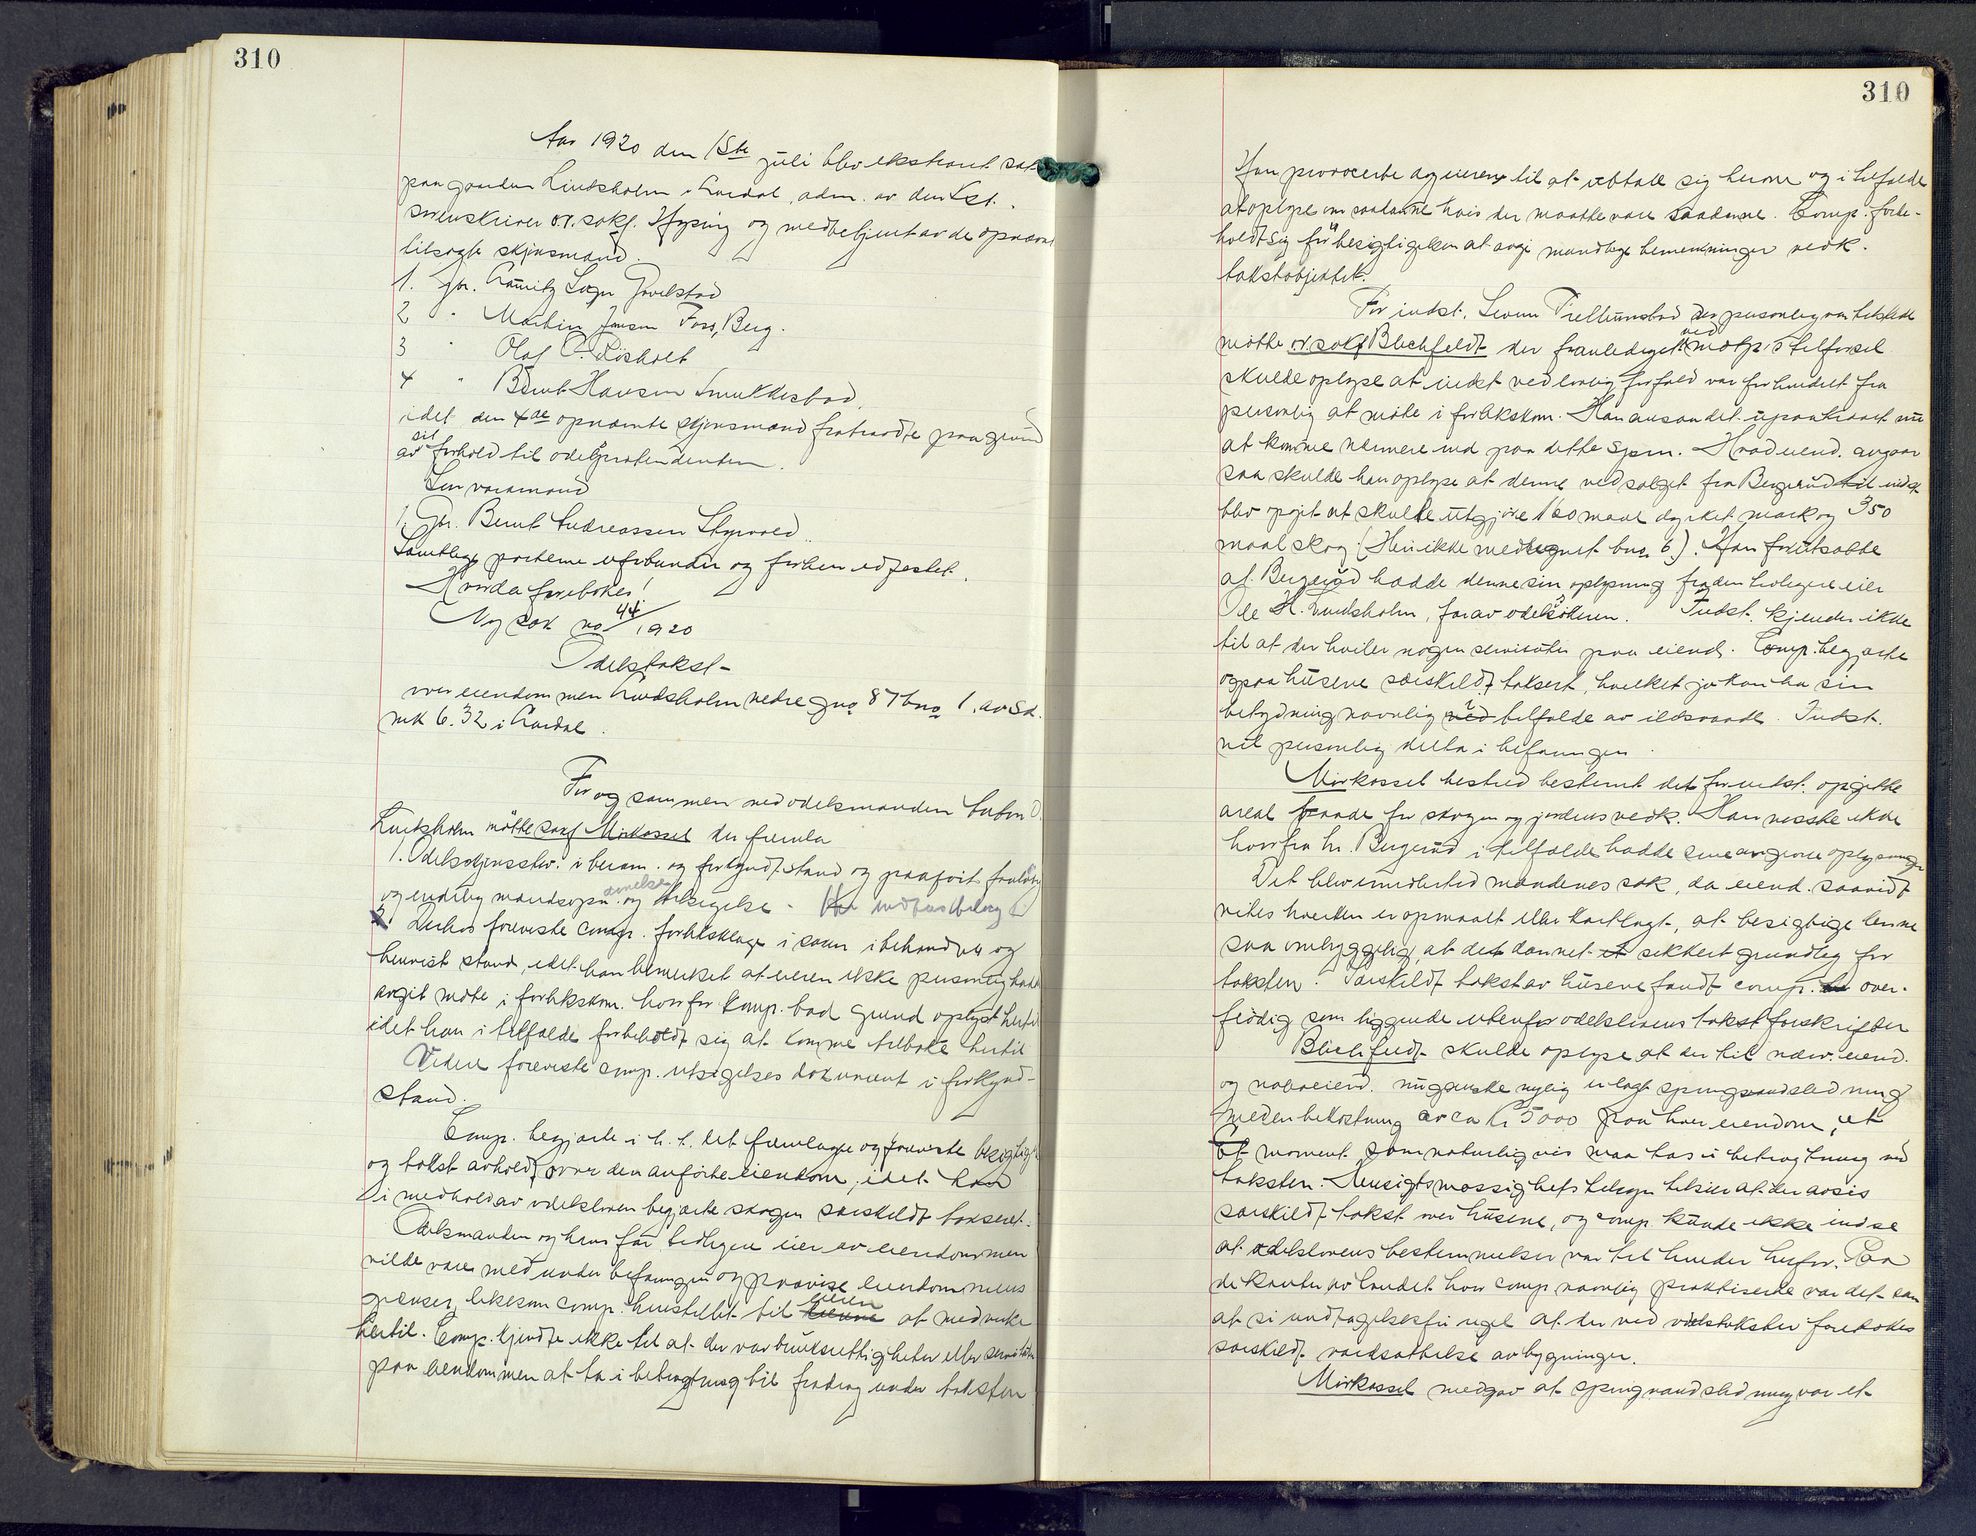 310
Aar 1920 den 15de juli blev ekstraret sat
paa gaarden Lindsholm i Lardal, adm. av den kst.
sorenskriver o.r. sakf. Hysing og medbetjent av de opnævnte
tilsagte skjønsmænd.
1. Gbr. Lauritz Logn Gavelstad
2 " Martin Jensen Foss, Berg.
3 " Olaf C. Løsholt
4 " Bernt Hansen Smukkestad.
idet den 4de opnævnte skjønsmand fratraadte paa grund
av sit forhold til odelspretendenten.
Som varamand
1. Gbr. Bernt Andreassen Styrvold.
Samtlige parterne uforbundne og forhen edfæstet.
Hvorda forebokes!
Ny sak no 44/1920
Odelstakst
over eiendommen Lindsholm nedre gno 87 bno 1. av sk.
mk 6.32 i Lardal.
For og sammen med odelsmanden
Lindsholm møtte sakf Mörkassel der fremla
1. Odelsskjønsstevn. i beram. og forkyndt stand og paaført foreløbig
og endelig mandsopnævnelse og tilsigelse.
2. Derhos foreviste comp. forliksklage i saken i behandlet og
henvist stand, idet han bemerket at eieren ikke personlig hadde
avgit møte i forlikskom. hvorfor komp. bad grund oplyst hertil
idet han i tilfælde forbeholdt sig at komme tilbake hertil
Videre foreviste comp. utsigelses dokument i forkyndt
stand.
Comp. begjærte i h. t. det fremlagte og foreviste besigtigelse
og takst avholdt over den anførte eiendom, idet han
i medhold av odelsloven begjærte skogen særskildt taksert.
Odelsmanden og hans far tidligere eier av eiendommen
vilde være med under befaringen og paavise eiendommens
grænser, likesom comp. henstillet til eieren at medvirke
hertil. Comp. kjendte ikke til at der var bruksrettigheter eller servitutter
paa eiendommen at ta i betragtning til fradrag under taksten
310
Han provocerte dog eieren til at uttale sig herom og i tilfælde
at oplyse om saadanne hvis der maatte være saadanne. Comp. forbe-
holdt sig før besigtigelsen at avgi mundtlige bemerkninger vedk.
takstobjektet.
For indst. Søren Trellumstad der personlig var tilstede
møtte or. sakf Blichfeldt der foranlediget ved motp.s tilførsel
skulde oplyse at indst ved lovlig forfald var forhindret fra
personlig at møte i forlikskom. Han ansaa det upaakrævet nu
at komme nærmere ind paa dette spm. Hvad eiend. angaar
saa skulde han oplyse at denne ved salget fra Bergerud til indst
blev opgit at skulle utgjøre 160 maal dyrket mark og 350
maal skog (Heri ikke medregnet bno 6). Han forutsatte
at Bergerud hadde denne sin oplysning fra den tidligere eier
Ole H. Lindsholm, far av odelssøkeren. Indst. kjender ikke
til at der hviler nogen servituter paa eiend. Comp. begjærte
ogsaa husene særskildt taksert, hvilket jo kan ha sin
betydning navnlig i tilfælde av ildsvaade. Indst.
vil personlig delta i befaringen.
Mörkassel bestred bestemt det for indst. opgitte
areal baade for skogen og jordens vedk. Han visste ikke
hvorfra hr. Bergerud i tilfælde hadde sine angivne oplysninger
Det blev imidlertid mændenes sak, da eiend. saavidt
vites hverken er opmaalt eller kartlagt, at besigtige denne
saa omhyggelig, at det dannet et sikkert grundlag for
taksten. Særskildt takst av husene fandt comp. over-
flødig som liggende utenfor odelslovens takst forskrifter
Blichfeldt skulde oplyse at der til nærv. eiend.
og naboeiend. nu ganske nylig er lagt springvandsledning
med en bekostning av ca kr 5000 paa hver eiendom, et
Et moment som naturligvis maa tas i betragtning ved
taksten. Hensigtsmæssighets hensyn tilsier at der avsis
særskildt takst over husene, og comp. kunde ikke indse
at odelslovens bestemmelser var til hinder herfor. Paa
de kanter av landet hvor comp navnlig praktiserte var det saa
at si undtagelsesfri regel at der ved odelstakster foretokes
særskildt værdsættelse av bygninger.
Mörkassel medgav at springvandsledning var et